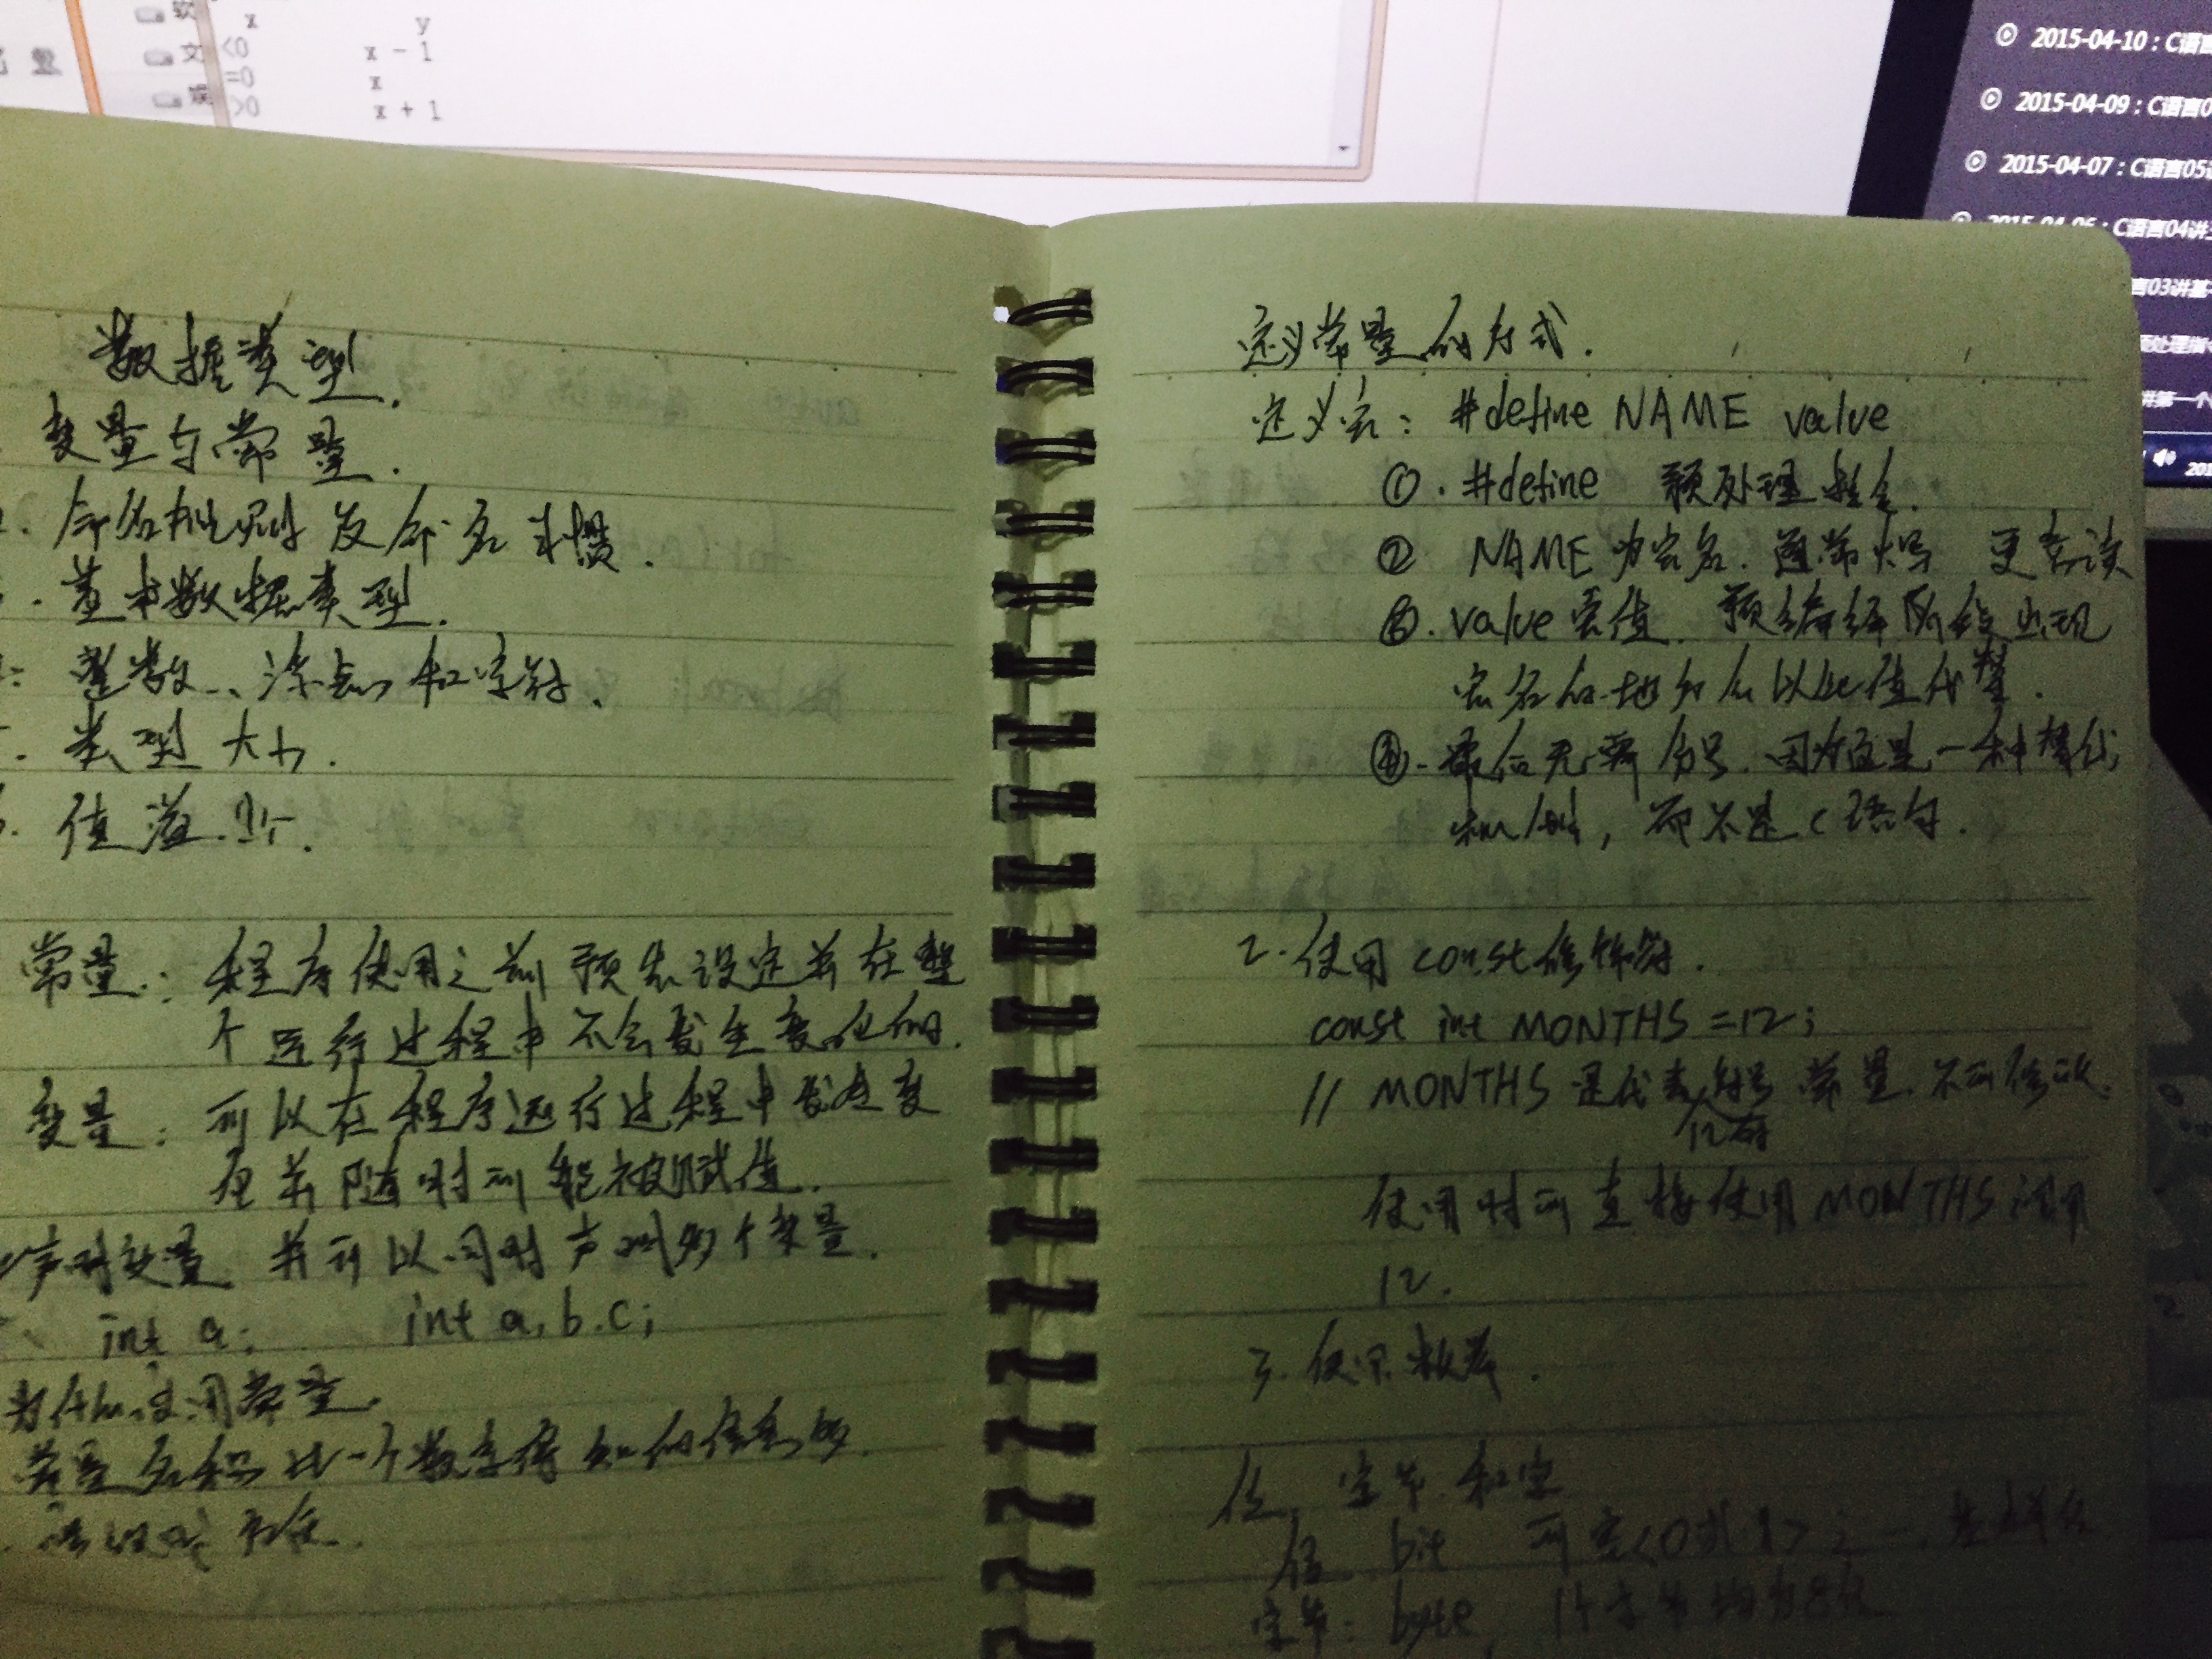 x y
<0 x - 1
=0 x
>0 x + 1
2015-04-10：C语言
2015-04-09：C语言0
2015-04-07：C语言05
2015-04-06：C语言04讲
言03讲基
预处理指
讲第一个
201
数据类型.
变量与常量.
命名规则及命名习惯.
基本数据类型.
整数、浮点、和字符.
类型大小.
值溢出.
常量：程序使用之前预先设定并在整
个运行过程中不会发生变化的.
变量：可以在程序运行过程中发生变
化并随时可能被赋值.
声明变量 并可以同时声明多个变量.
int a; int a, b, c;
为什么使用常量.
常量名称比一个数字得知的信息多.
定义常量的方式.
定义宏：#define NAME value
①. #define 预处理指令.
② NAME 为宏名. 通常大写 更易读
③. value 宏值. 预编译阶段出现
宏名的地方会以此值代替.
④. 最后无需分号. 因为这是一种替代
机制, 而不是C语句.
2. 使用 const 修饰符.
const int MONTHS =12;
// MONTHS 是代表符号常量. 不可修改.
12的
使用时可直接使用 MONTHS 调用
12.
3. 使用枚举.
位、字节和字
位 bit 可容<0或1>
字节： byte 1个字节均为8位